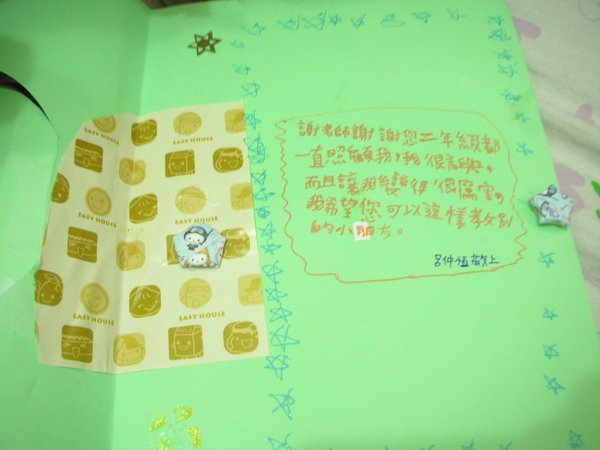 EASY HOUSE
EASY HOUSE
EASY HOUSE
EASY HOUSE
EASY HOUSE
MILK
謝老師謝謝您二年級都
一直照顧我,我很高興,
而且讓我變得很厲害,
我希望您可以這樣教別
的小朋友。
呂仲恆敬上